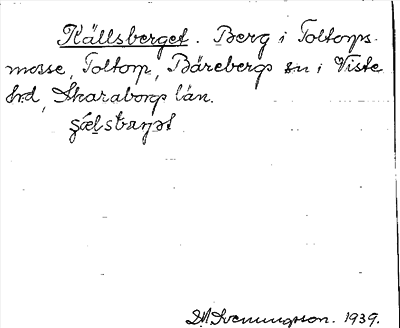 Källsberget. Berg i Toltorps
mosse, Toltorp, Bärebergs sn i Viste
hrd, Skaraborgs län.
Svenungsson. 1939.